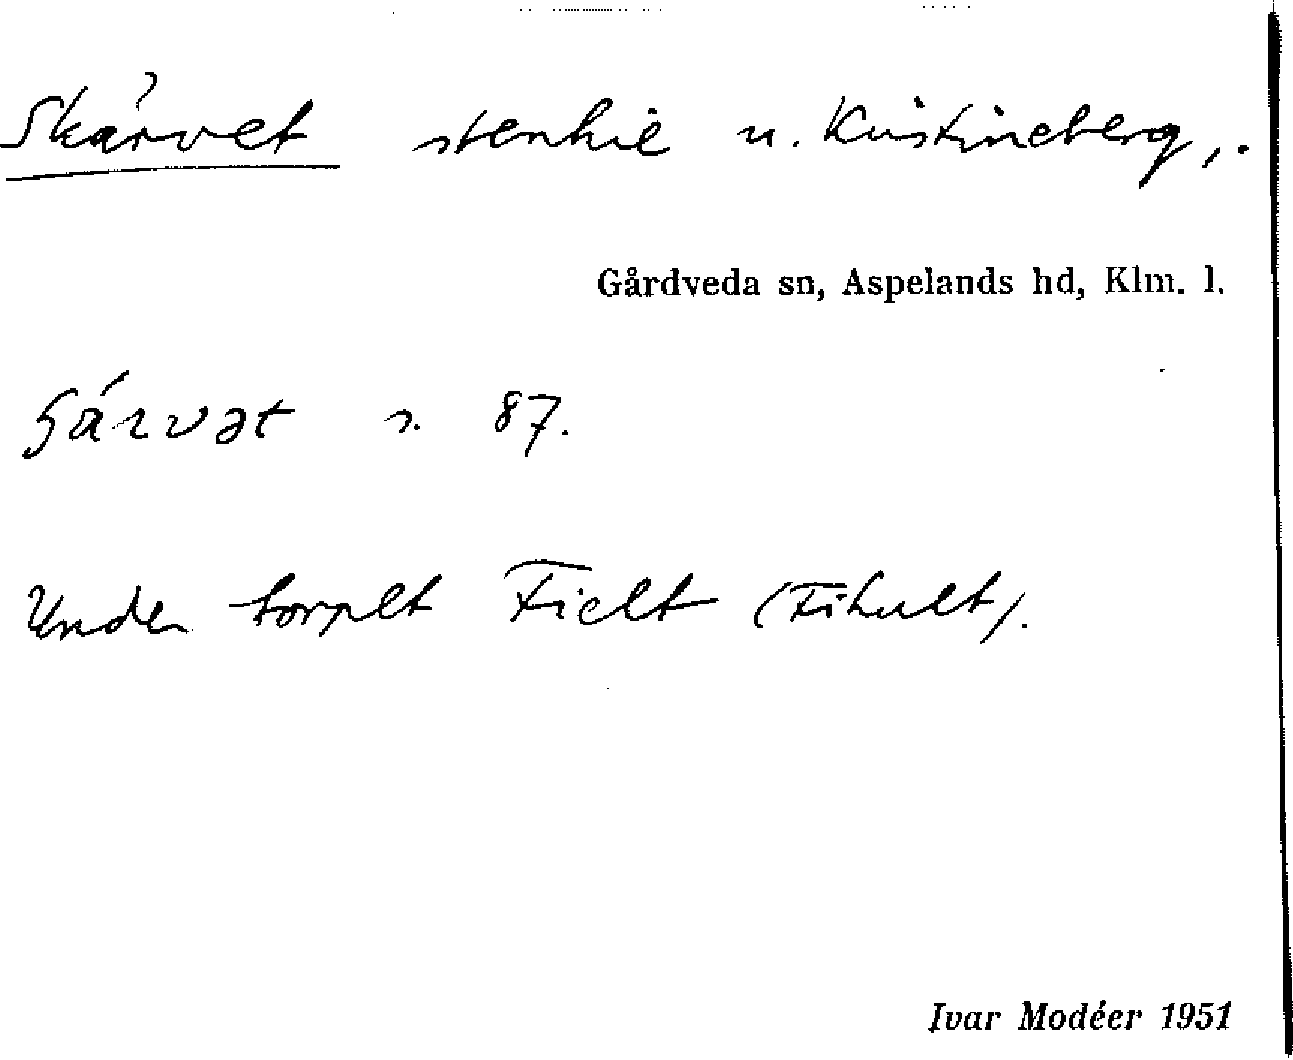 Skärvet stenhie u. Kristineberg,.
Gårdveda sn, Aspelands hd, Klm. l.
s. 87.
Under torpet Fielt (Fihult).
Ivar Modéer 1951